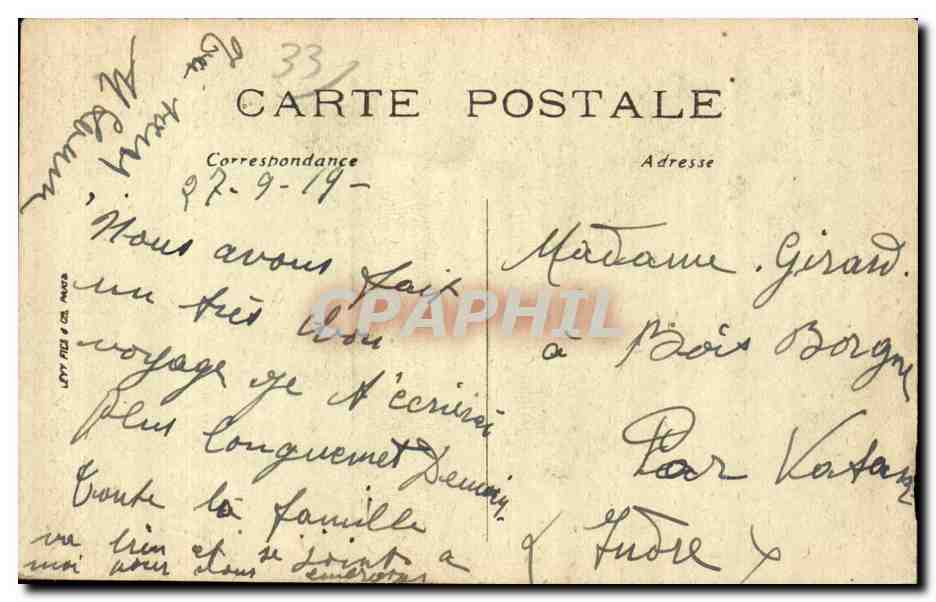 33
CARTE POSTALE
Correspondance
Adresse
27-9-19-
Nous avons fait
un très bon
voyage je t'écrirai
plus longuemet Demain.
Toute la famille
va bien et se joint a
moi pour vous embrasser
Madame. Girard.
à Bois Borgne
Par Vatan
(Indre)
LEVY FILS & CIE, PARIS
CPAPHIL